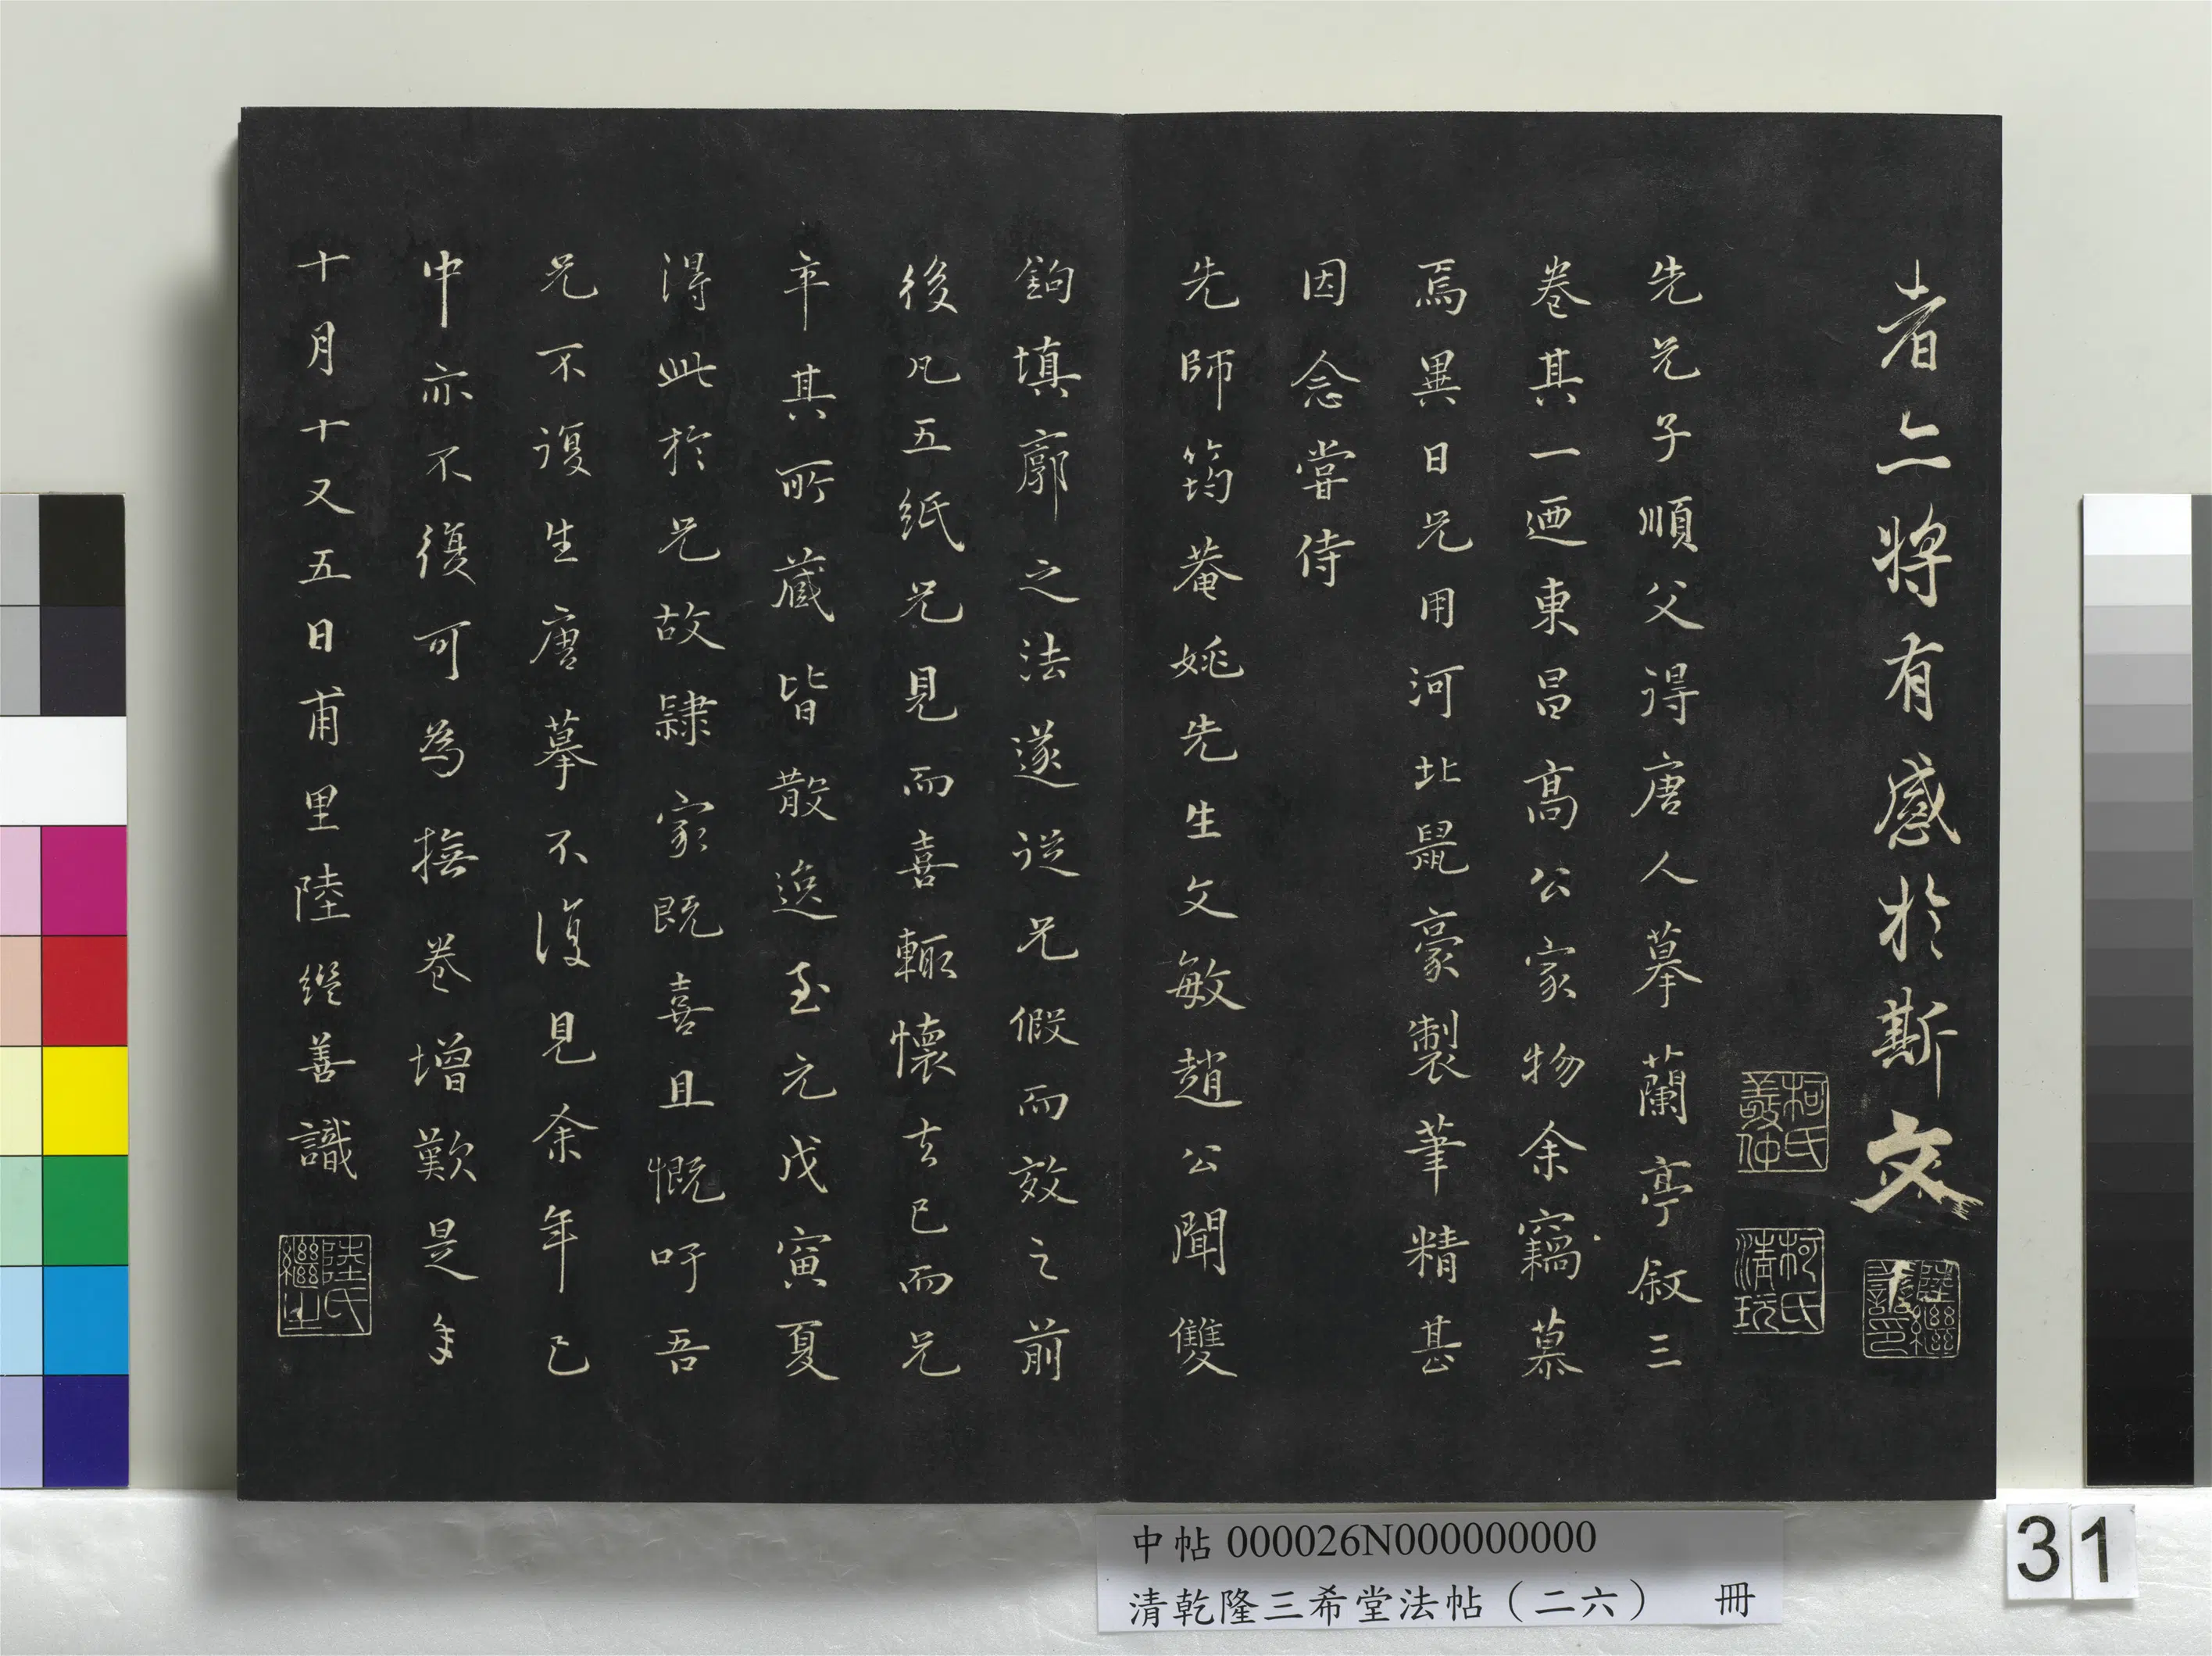 者亦將有感於斯文
陸繼善印
柯氏敬仲
柯氏清玩
先兄子順父得唐人摹蘭亭叙三
卷其一迺東昌高公家物余竊慕
焉異日兄用河北鼠豪製筆精甚
因念嘗侍
先師筠菴姚先生文敏趙公聞雙
鉤填廓之法遂從兄假而效之前
後凡五紙兄見而喜輒懷去已而兄
卒其所藏皆散逸至元戊寅夏
得此於兄故隸家既喜且慨吁吾
兄不復生唐摹不復見余年已
中亦不復可為撫卷增歎是年
十月十又五日甫里陸繼善識
陸氏繼之
中帖 000026N000000000
清乾隆三希堂法帖（二六） 冊
31